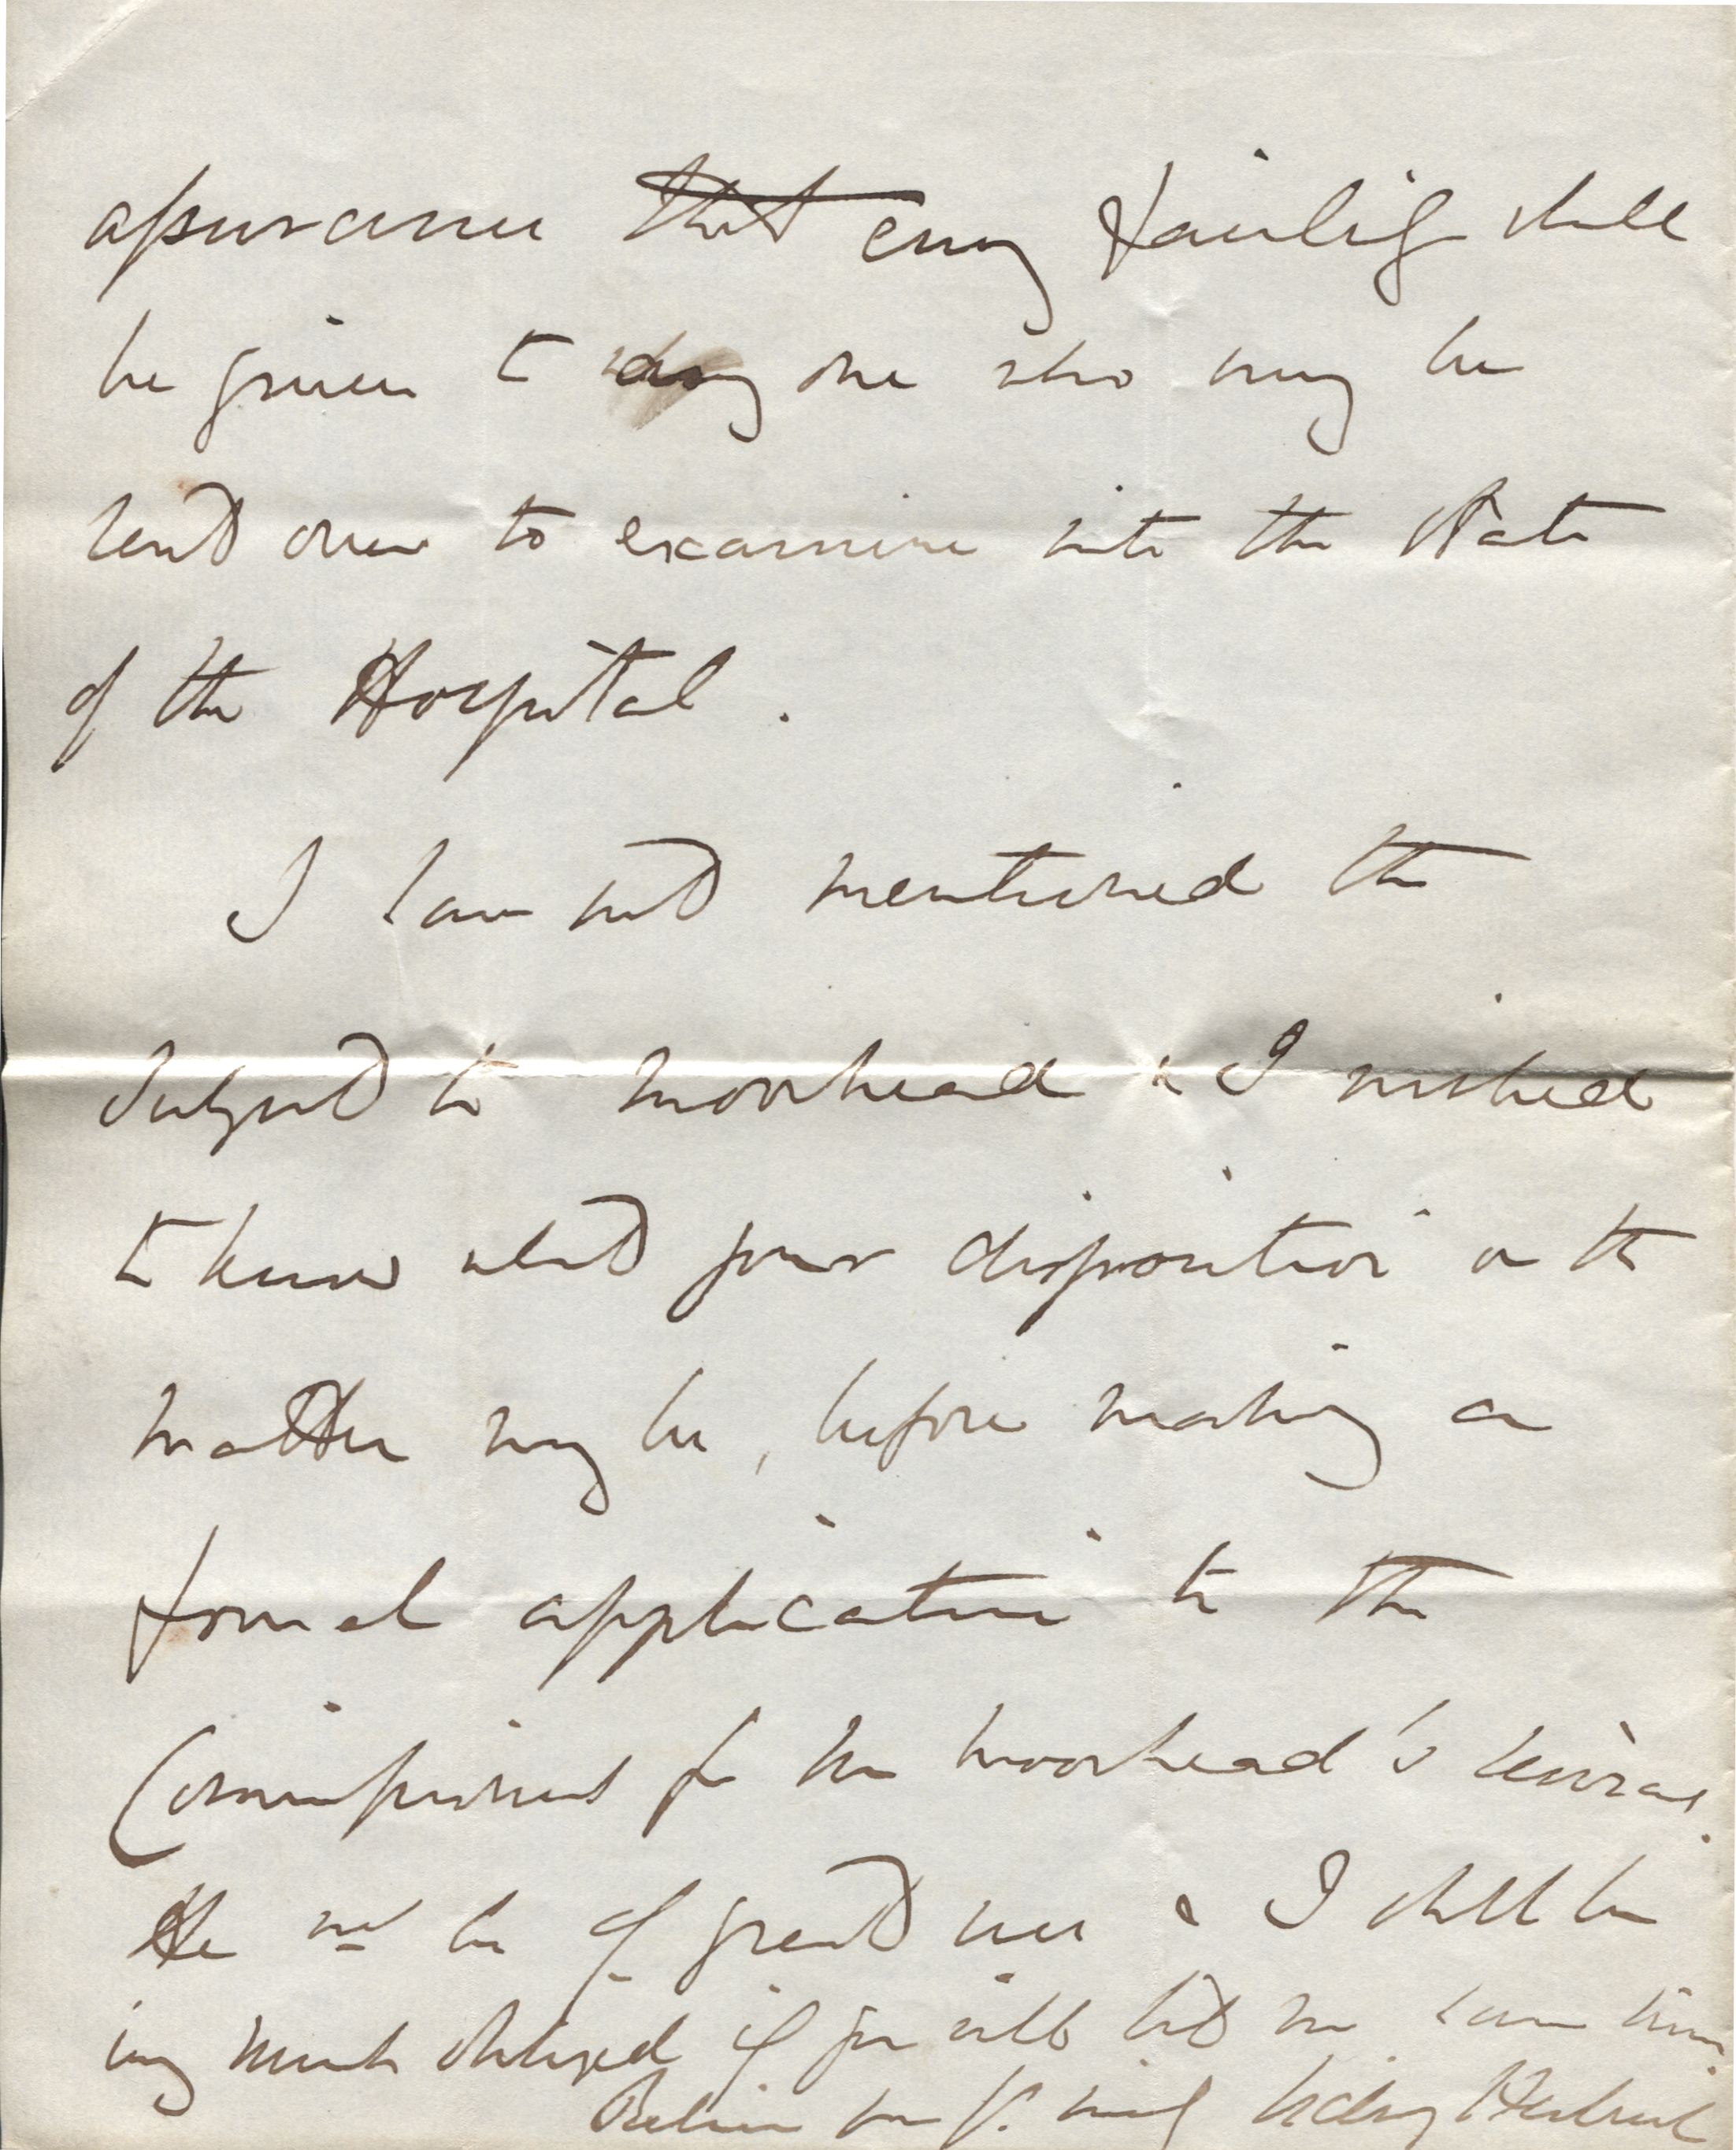 assurance that every facility shall
be given to any one who may be
sent over to examine into the State
of the Hospital.
I have not mentioned the
subject to Moorhead & I wished
to know what your disposition in the
matter may be, before making a
formal application to the
Commissioners for Mr Moorhead's services.
He wd be of great use & I shall be
very much obliged if you will let me have him.
Believe me yrs. truly Sidney Herbert